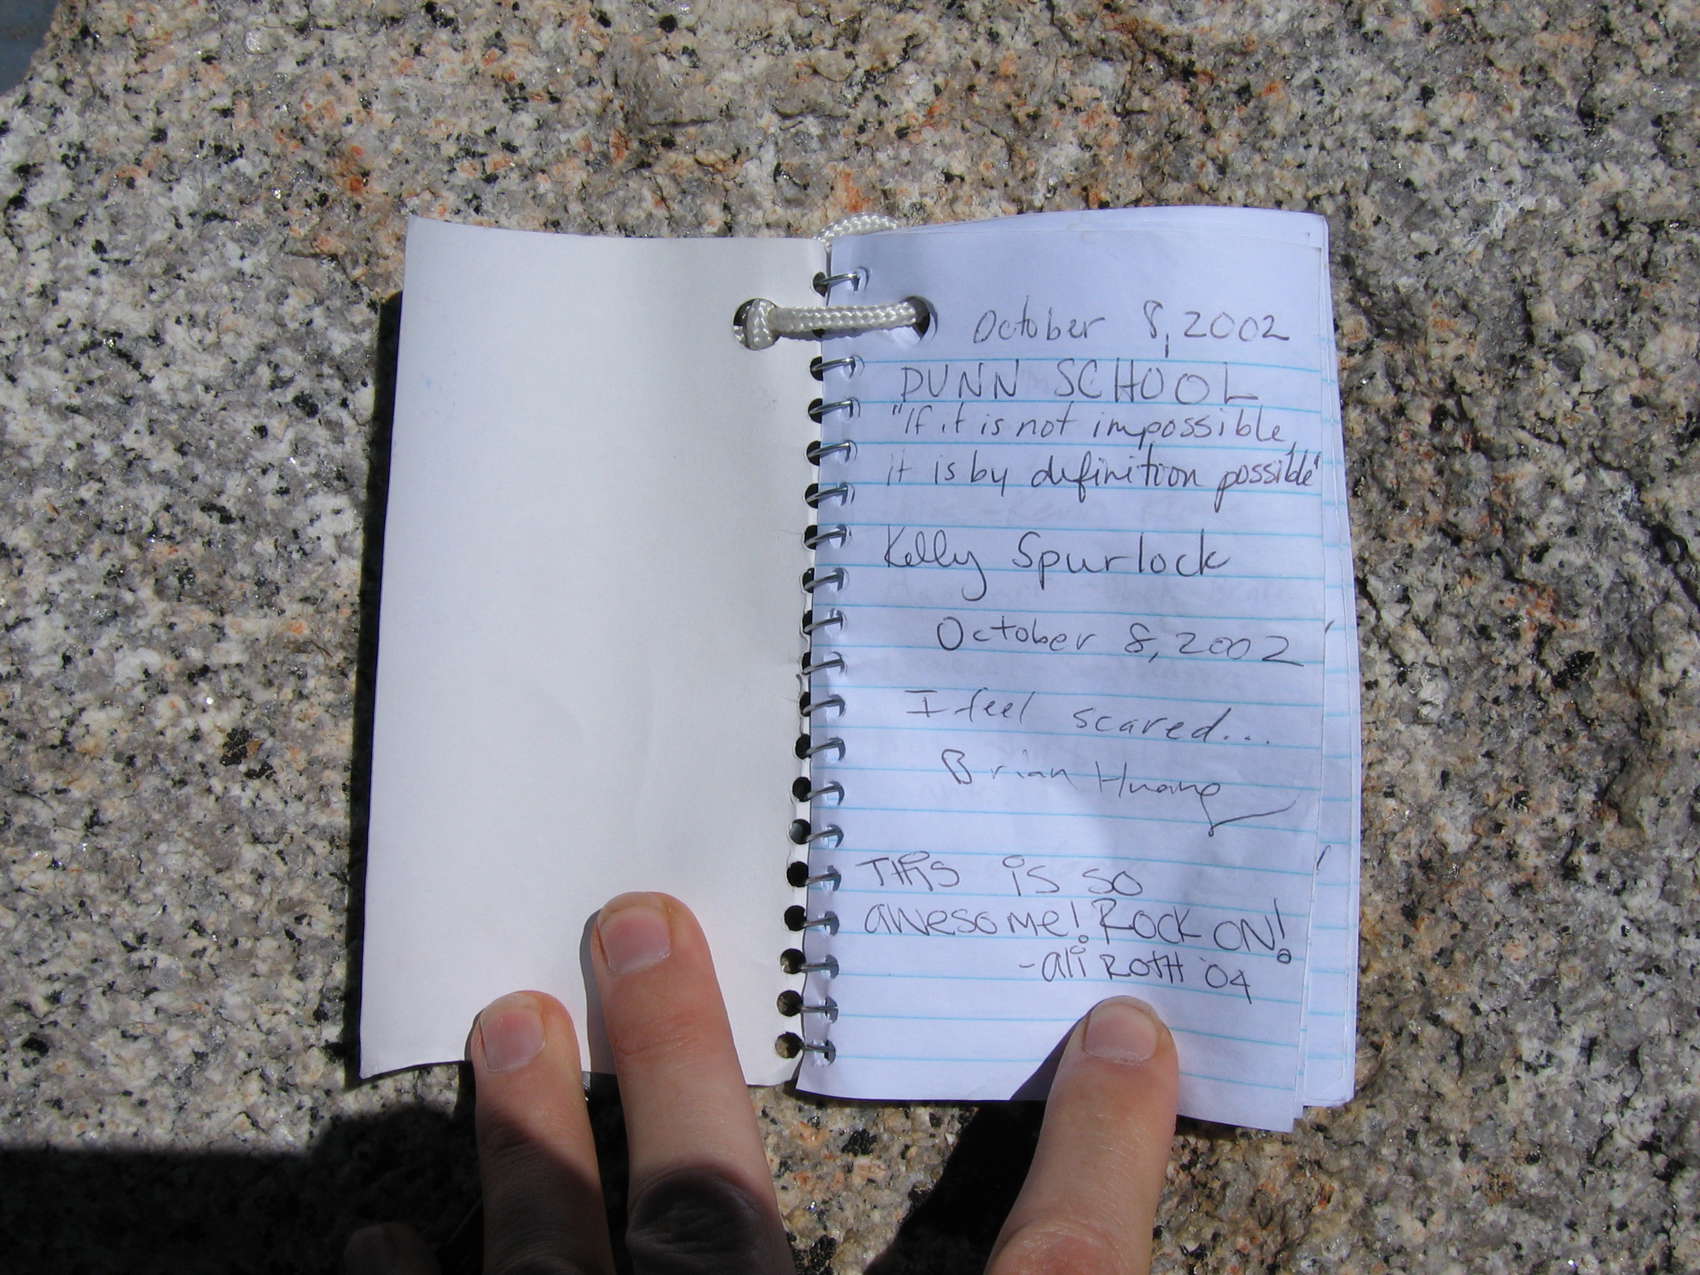 October 8, 2002
DUNN SCHOOL
"If it is not impossible,
it is by definition possible"
Kelly Spurlock
October 8, 2002
I feel scared...
Brian Huang
THis is so
awesome! Rock ON!
-ali Roth '04